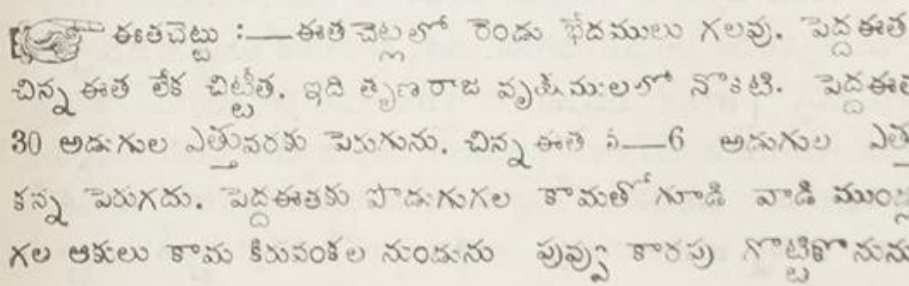 ఈతచెట్టు :—ఈత చెట్లలో రెండు భేదములు గలవు. పెద్ద ఈత
చిన్న ఈత లేక చిట్టీత. ఇది తృణ రాజ వృక్షములలో నొకటి. పెద్దఈత
30 అడుగుల ఎత్తువరకు పెరుగును. చిన్న ఈత 5—6 అడుగుల ఎత్తు
కన్న పెరుగదు. పెద్దఈతకు పొడుగుగల కామతో గూడి వాడి ముండ్ల
గల ఆకులు కామ కిరువంకల నుండును పువ్వు కారపు గొట్టికొనును